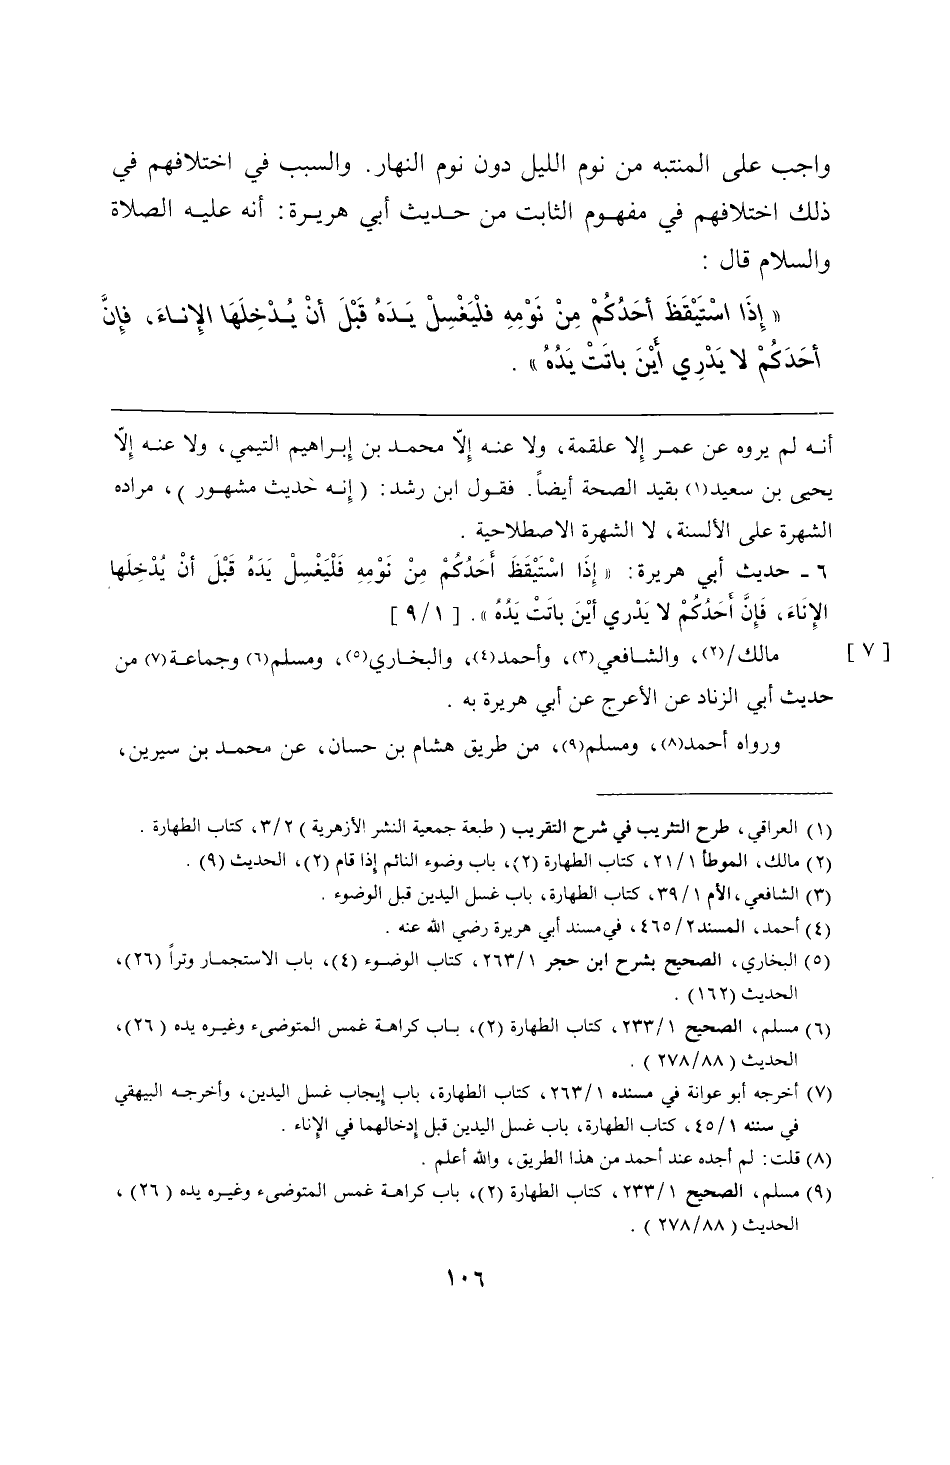 واجب على المنتبه من نوم الليل دون نوم النهار. والسبب في اختلافهم في
ذلك اختلافهم في مفهوم الثابت من حديث أبي هريرة: أنه عليه الصلاة
والسلام قال :
« إِذَا اسْتَيْقَظَ أحَدُكُمْ مِنْ نَوْمِهِ فلْيَغْسِلْ يَدَهُ قَبْلَ أنْ يُدْخِلَهَا الإِناءَ، فإِنَّ
أحَدَكُمْ لا يَدْرِي أَيْنَ باتَتْ يَدُهُ » .
أنه لم يروه عن عمر إلا علقمة، ولا عنه إلّا محمد بن إبراهيم التيمي، ولا عنه إلّا
يحيى بن سعيد(١) بقيد الصحة أيضاً. فقول ابن رشد: ( إنه حديث مشهور )، مراده
الشهرة على الألسنة، لا الشهرة الاصطلاحية .
٦ - حديث أبي هريرة: « إِذَا اسْتَيْقَظَ أَحَدُكُمْ مِنْ نَوْمِهِ فَلْيَغْسِلْ يَدَهُ قَبْلَ أنْ يُدْخِلَها
الإِنَاءَ، فَإِنَّ أَحَدُكُمْ لا يَدْري أيْنَ باتَتْ يَدُهُ ». [ ٩/١ ]
[ ٧ ] مالك/(٢)، والشافعي(٣)، وأحمد(٤)، والبخاري(٥)، ومسلم(٦) وجماعة(٧) من
حديث أبي الزناد عن الأعرج عن أبي هريرة به .
ورواه أحمد(٨)، ومسلم(٩)، من طريق هشام بن حسان، عن محمد بن سيرين،
(١) العراقي، طرح التثريب في شرح التقريب ( طبعة جمعية النشر الأزهرية ) ٣/٢، كتاب الطهارة .
(٢) مالك، الموطأ ٢١/١، كتاب الطهارة (٢)، باب وضوء النائم إذا قام (٢)، الحديث (٩) .
(٣) الشافعي، الأم ٣٩/١، كتاب الطهارة، باب غسل اليدين قبل الوضوء .
(٤) أحمد، المسند ٤٦٥/٢، في مسند أبي هريرة رضي الله عنه .
(٥) البخاري، الصحيح بشرح ابن حجر ٢٦٣/١، كتاب الوضوء (٤)، باب الاستجمار وتراً (٢٦)،
الحديث (١٦٢) .
(٦) مسلم، الصحيح ٢٣٣/١، كتاب الطهارة (٢)، باب كراهة غمس المتوضىء وغيره يده ( ٢٦)،
الحديث ( ٢٧٨/٨٨ ) .
(٧) أخرجه أبو عوانة في مسنده ٢٦٣/١، كتاب الطهارة، باب إيجاب غسل اليدين، وأخرجه البيهقي
في سننه ٤٥/١، كتاب الطهارة، باب غسل اليدين قبل إدخالهما في الإناء .
(٨) قلت: لم أجده عند أحمد من هذا الطريق، والله أعلم .
(٩) مسلم، الصحيح ٢٣٣/١، كتاب الطهارة (٢)، باب كراهة غمس المتوضىء وغيره يده ( ٢٦) ،
الحديث ( ٢٧٨/٨٨ ) .
١٠٦